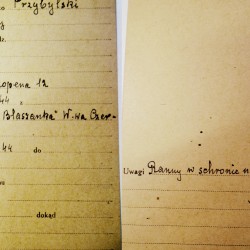 Przybylski
opena 12
44
Błaszanka" W-wa Czer-
44 do
dokąd
Uwagi Ranny w schronie n